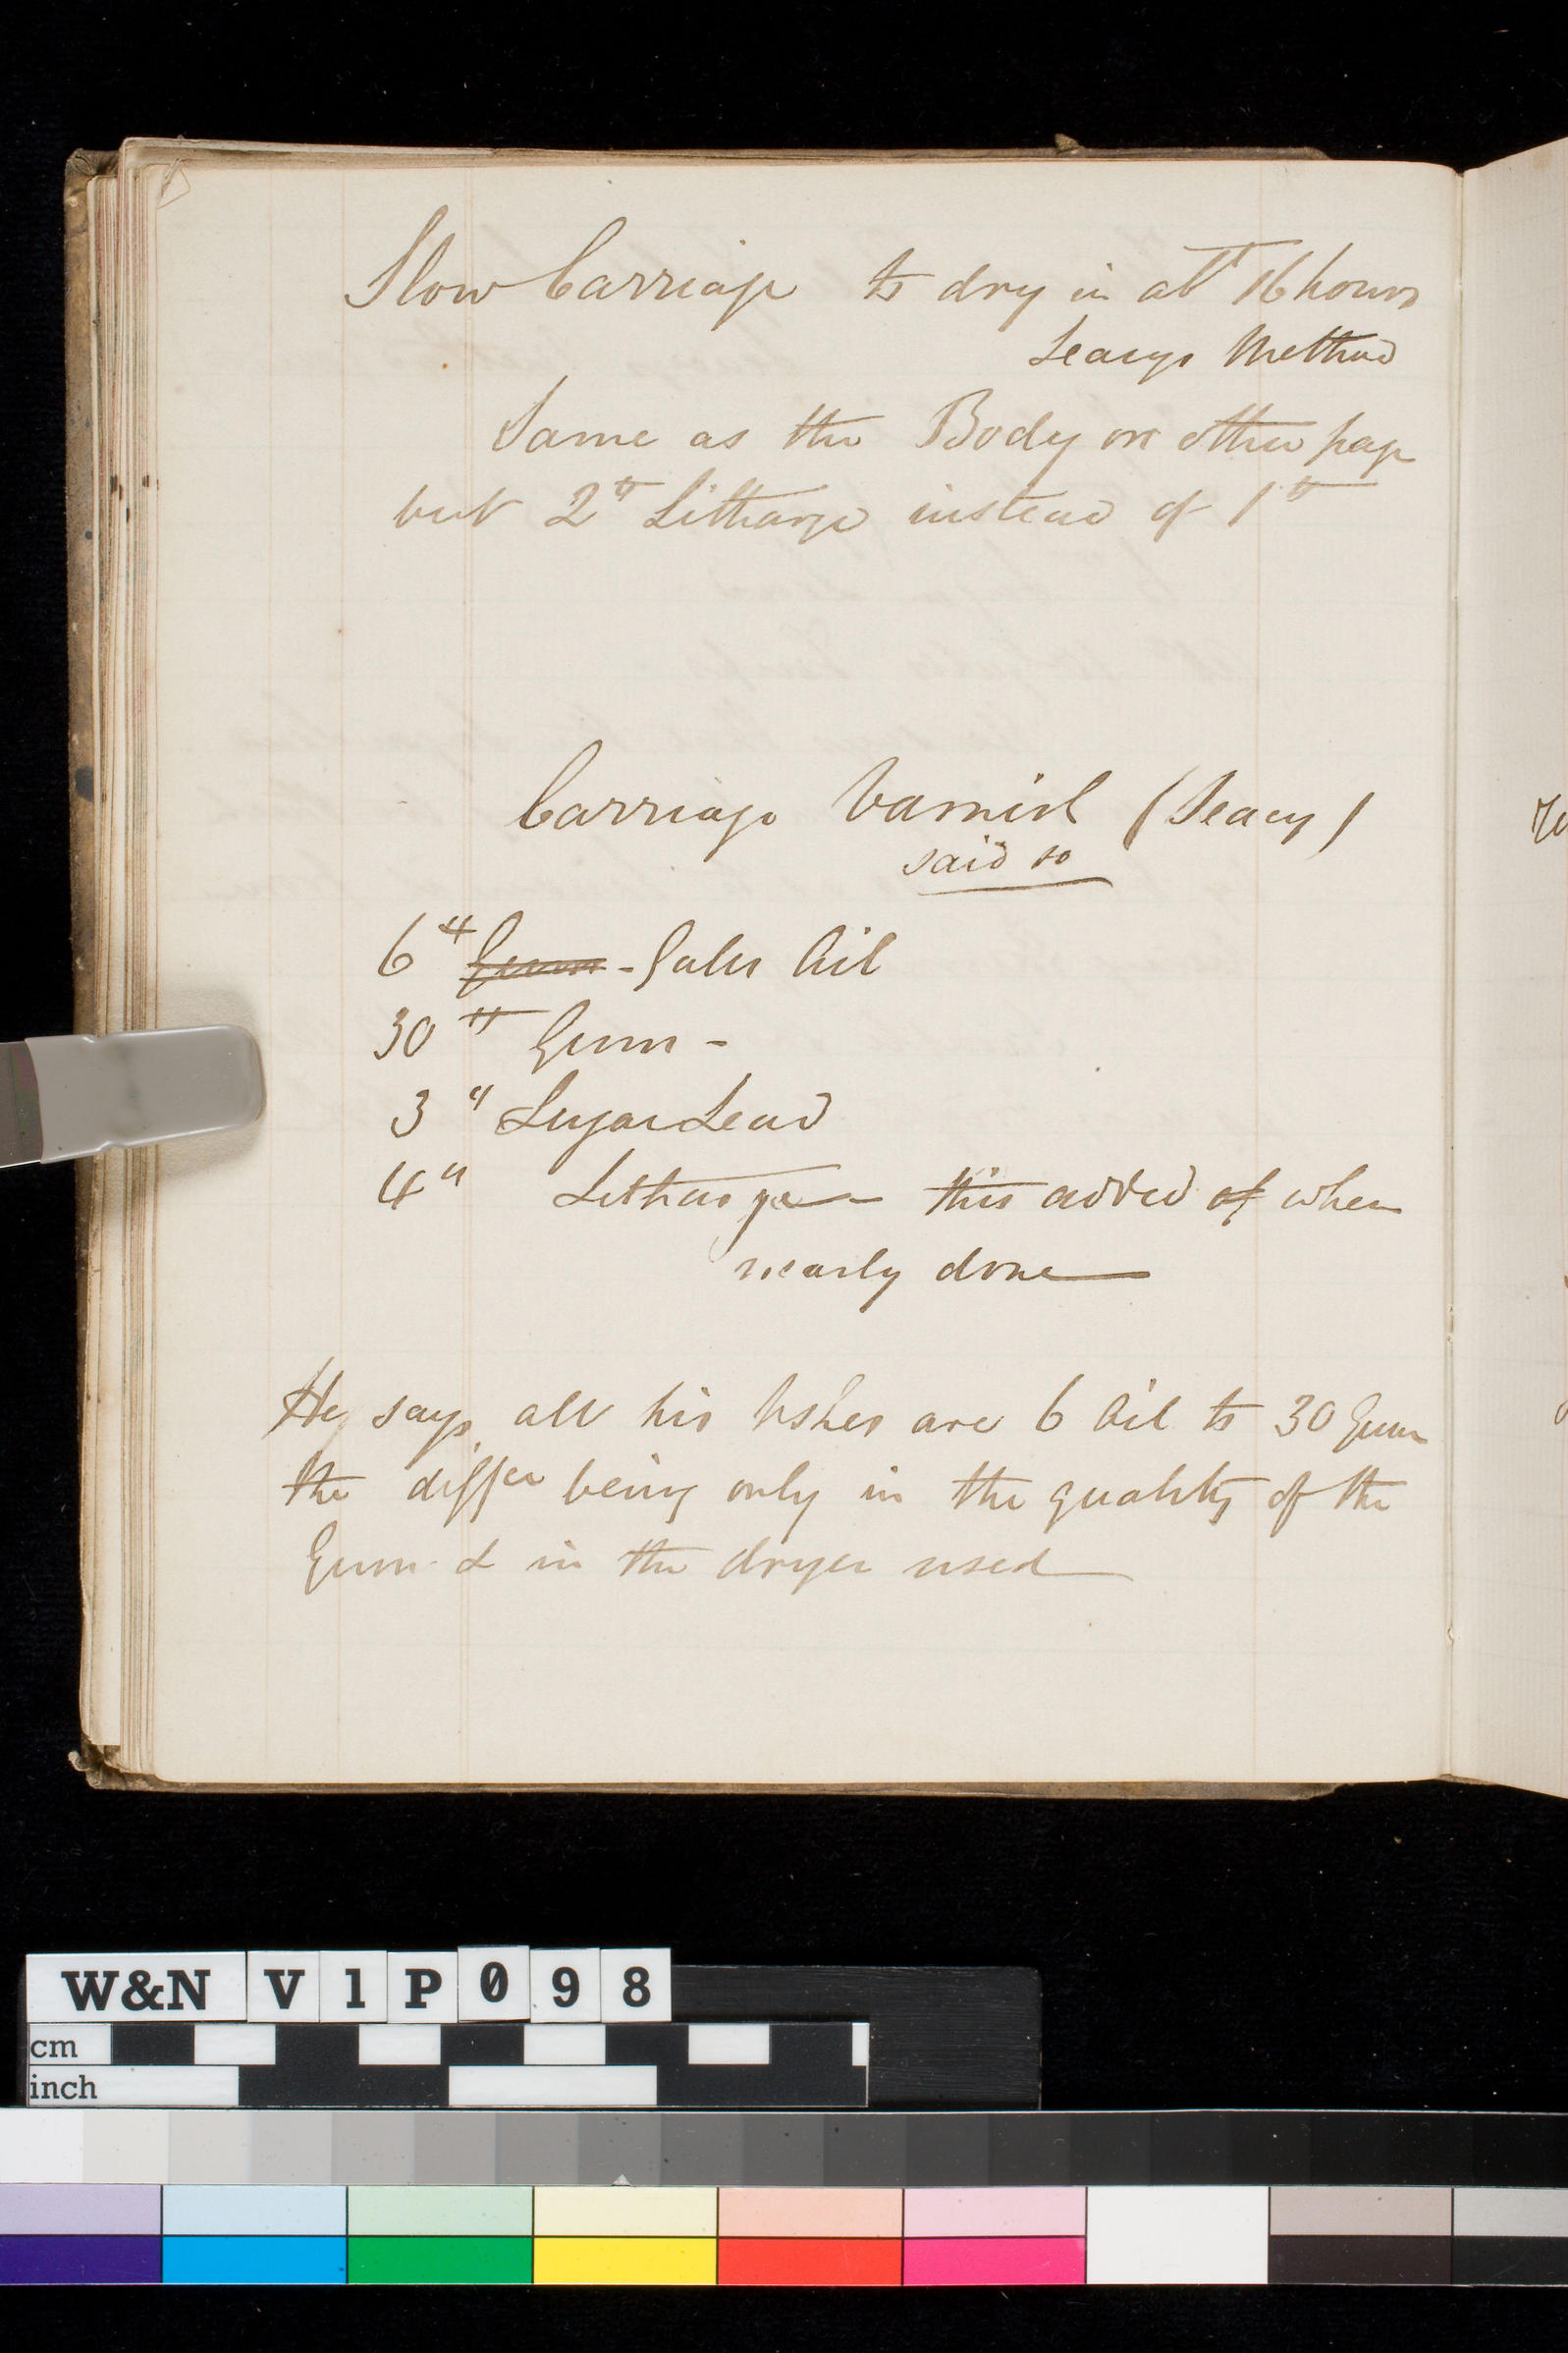 Slow Carriage to dry in abt 16 hours
Seacys Method
Same as the Body on other page
but 2 lb Litharge instead of 1 lb
Carriage Varnish (Seacy)
said so
6 " Gum - Galls Oil
30 " Gum -
3 " Sugar Lead
4 " Litharge - this added of when
nearly done
He says all his Vshes are 6 Oil to 30 Gum
the differ being only in the quality of the
Gum & in the dryer used
W&N V1P098
cm
inch